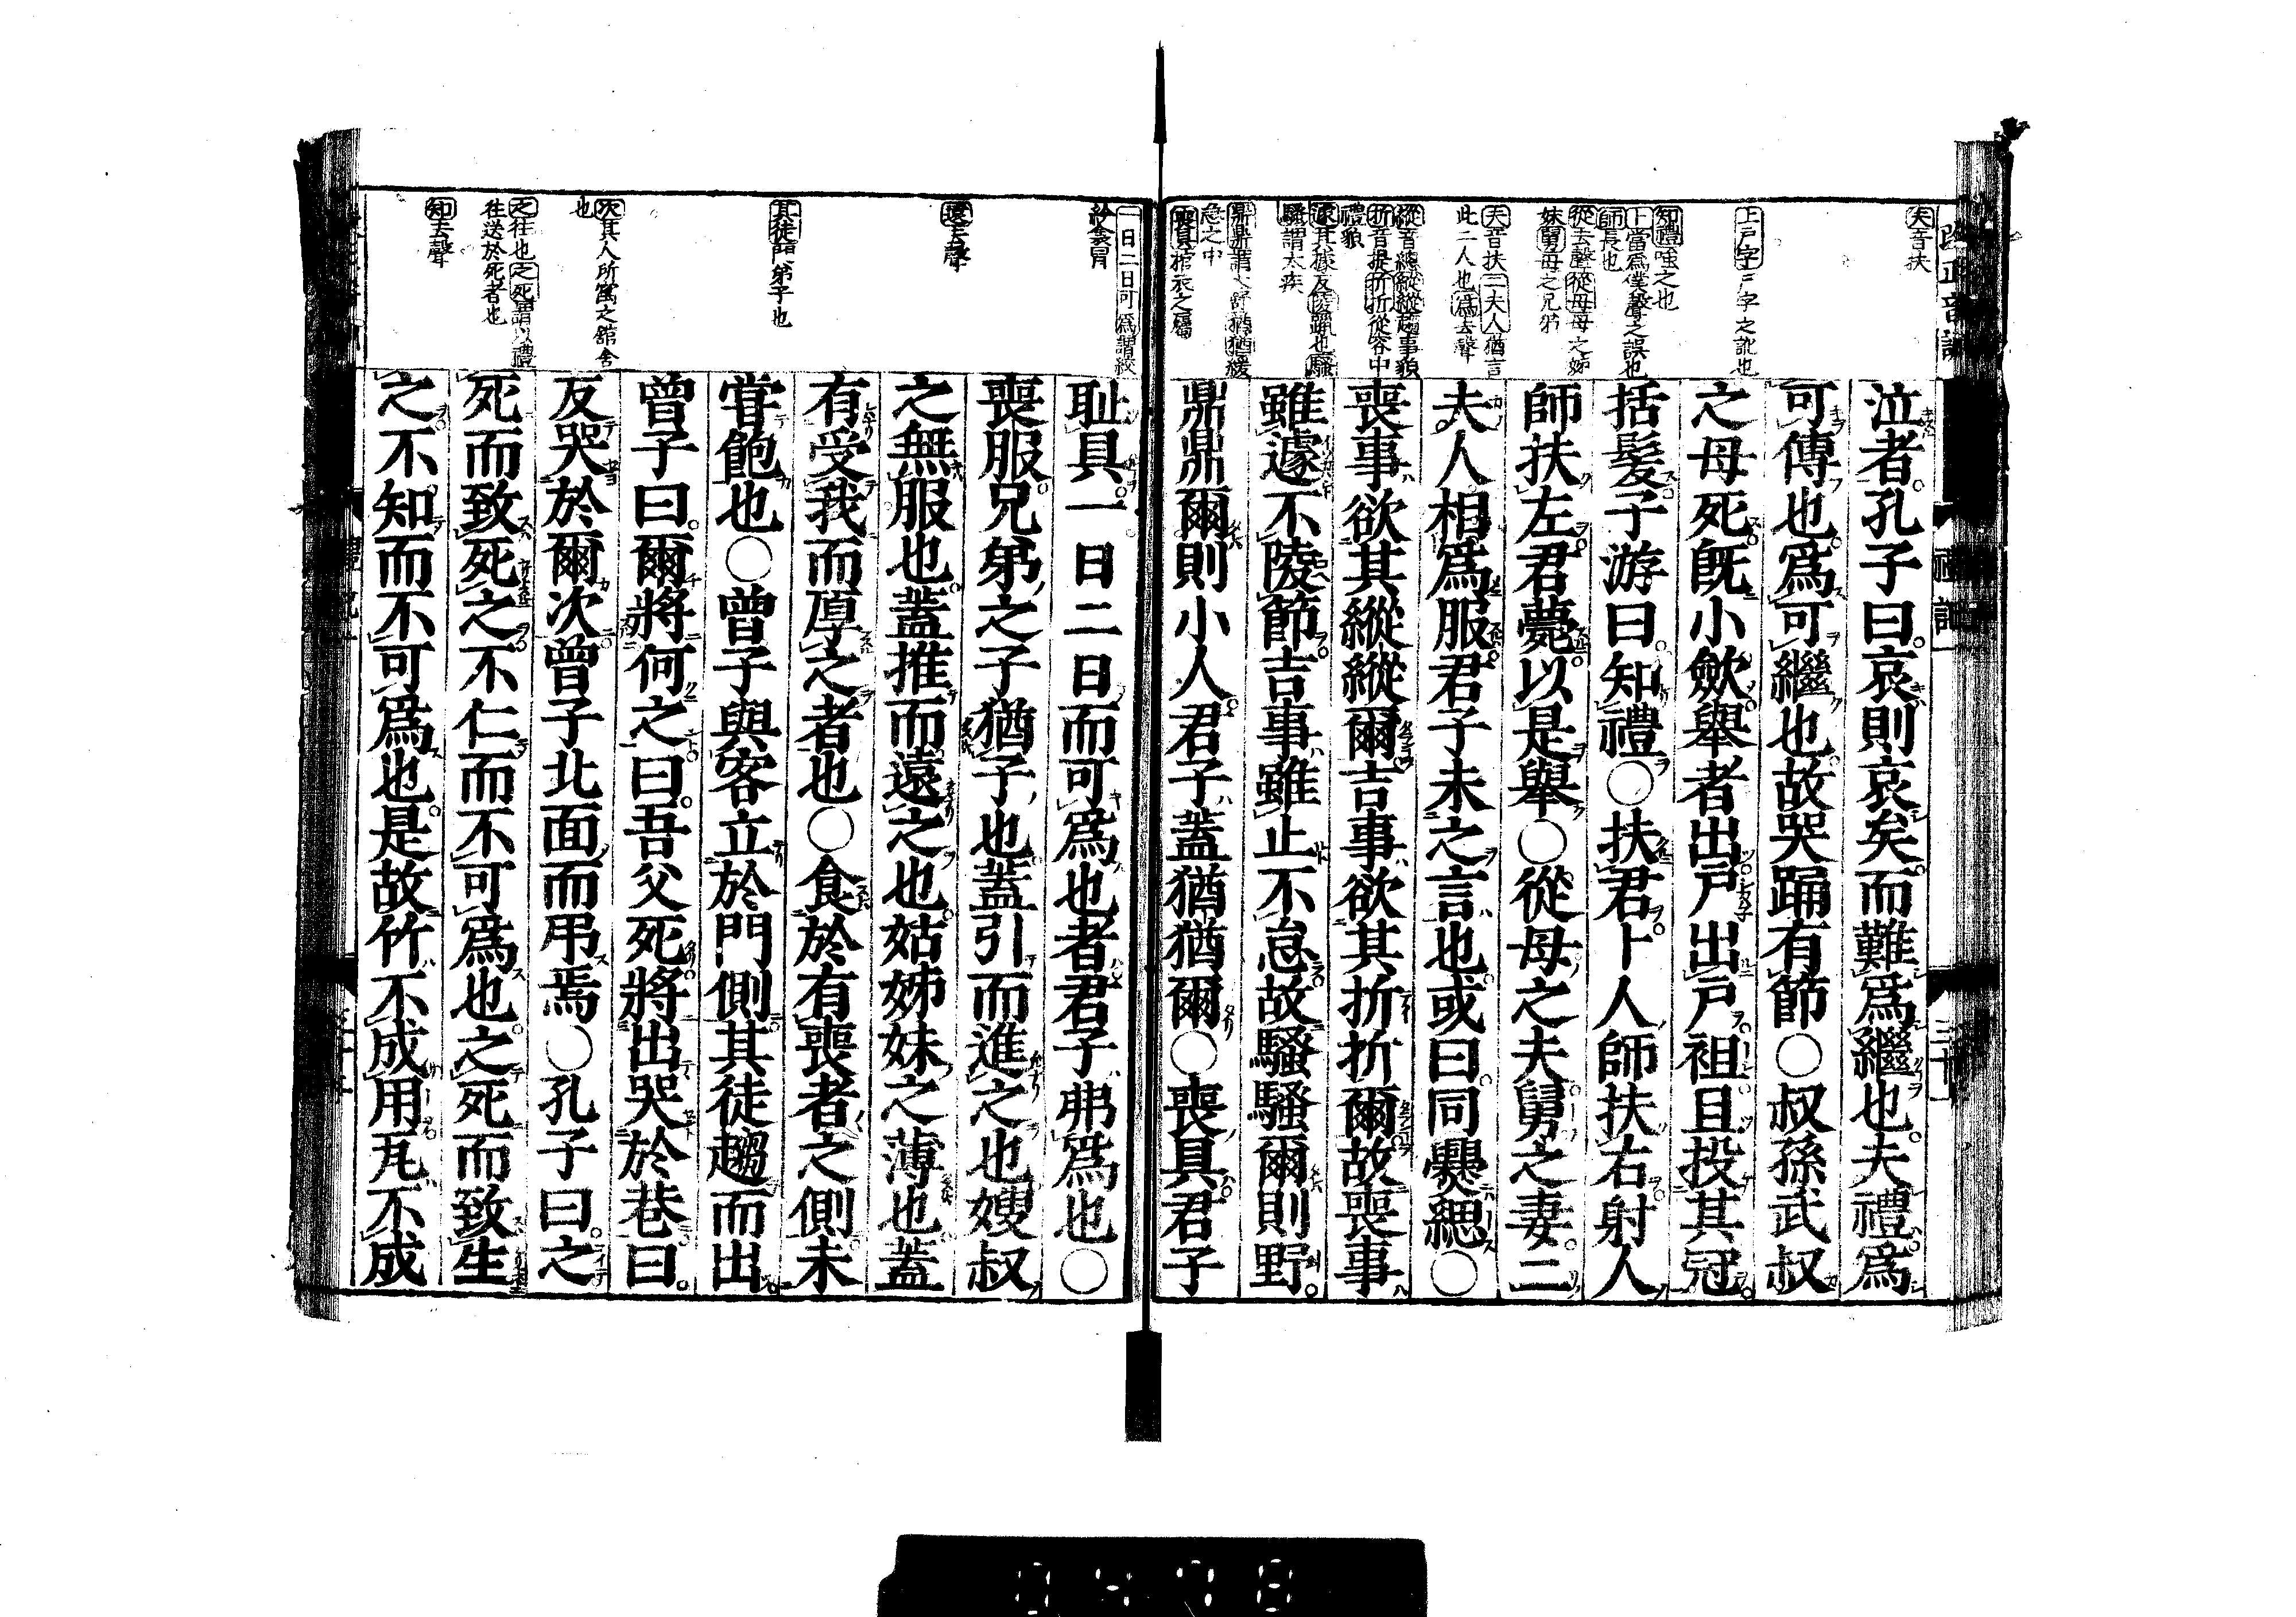 夫音扶
上戸字戸字之訛也
知禮嗤之也
卜當爲僕聲之誤也
師長也
從去聲從母母之姊
妹舅母之兄弟
夫音扶二夫人猶言
此二人也爲去聲
縱音總縱縱趨事貌
折音提折折從容中
禮貌
遽其據反陵躐也騷
騷謂太疾
鼎鼎謂太舒猶猶緩
急之中
喪具棺衣之屬
泣者孔子曰哀則哀矣而難爲繼也夫禮爲
可傳也爲可繼也故哭踊有節○叔孫武叔
之母死既小斂舉者出戸出戸袒且投其冠
括髮子游曰知禮○扶君卜人師扶右射人
師扶左君薨以是舉○從母之夫舅之妻二
夫人相爲服君子未之言也或曰同爨緦○
喪事欲其縱縱爾吉事欲其折折爾故喪事
雖遽不陵節吉事雖止不怠故騷騷爾則野
鼎鼎爾則小人君子蓋猶猶爾○喪具君子
一日二日可爲謂絞
紟衾冒
遠去聲
其徒謂弟子也
次其人所寓之舘舍
也
之往也之死謂以禮
往送於死者也
知去聲
耻具一日二日而可爲也者君子弗爲也○
喪服兄弟之子猶子也蓋引而進之也嫂叔
之無服也蓋推而遠之也姑姊妹之薄也蓋
有受我而厚之者也○食於有喪者之側未
甞飽也○曾子與客立於門側其徒趨而出
曾子曰爾將何之曰吾父死將出哭於巷曰
反哭於爾次曾子北面而弔焉○孔子曰之
死而致死之不仁而不可爲也之死而致生
之不知而不可爲也是故竹不成用瓦不成